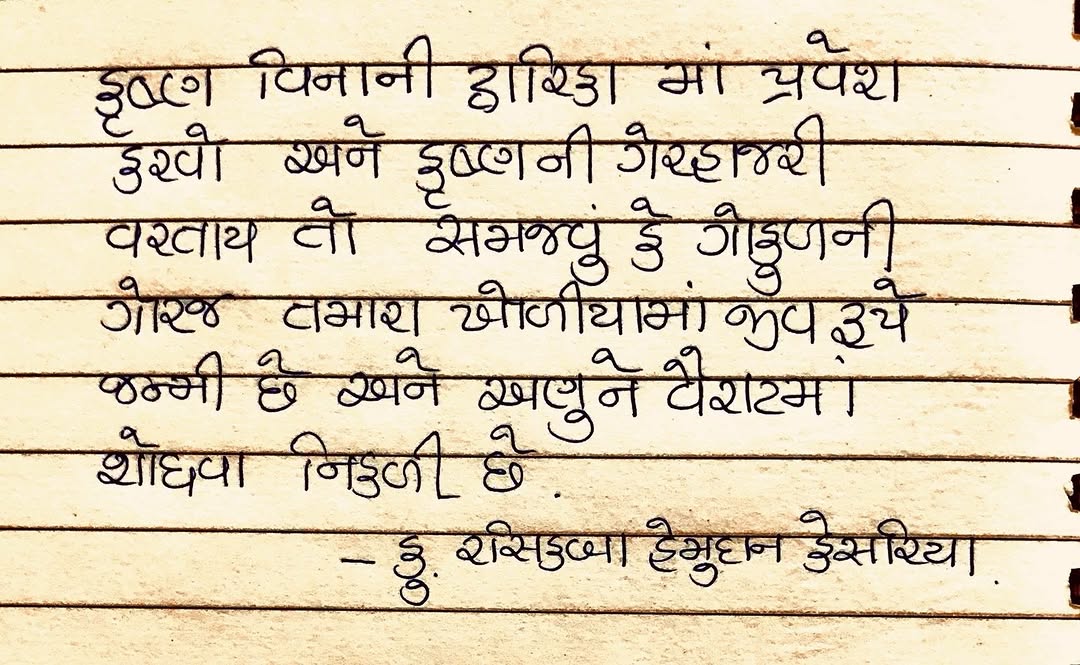 કૃષ્ણ વિનાની દ્વારિકા માં પ્રવેશ
કરવો અને કૃષ્ણની ગેરહાજરી
વરતાય તો સમજવું કે ગોકુળની
ગોરજ તમારા ખોળીયામાં જીવ રૂપે
જન્મી છે અને અણુને વૈરાટમાં
શોધવા નિકળી છે.
– કુ. રસિકબા હેમુદાન કેસરિયા.